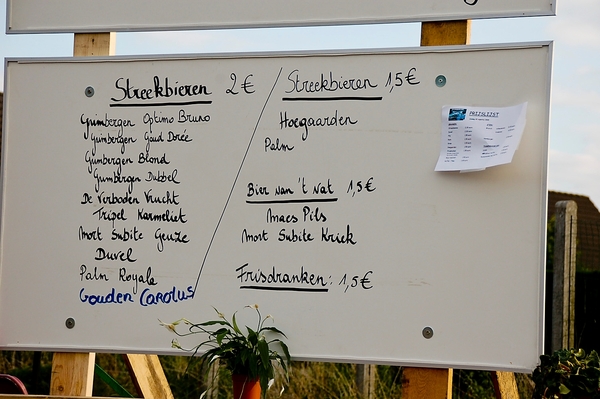 Streekbieren 2 €
Grimbergen Optimo Bruno
Grimbergen Goud Dorée
Grimbergen Blond
Grimbergen Dubbel
De Verboden Vrucht
Tripel Karmeliet
Mort Subite Geuze
Duvel
Palm Royale
Gouden Carolus
Streekbieren 1,5 €
Hoegaarden
Palm
Bier van 't Vat 1,5 €
Maes Pils
Mort Subite Kriek
Frisdranken: 1,5 €
PRIJSLIJST